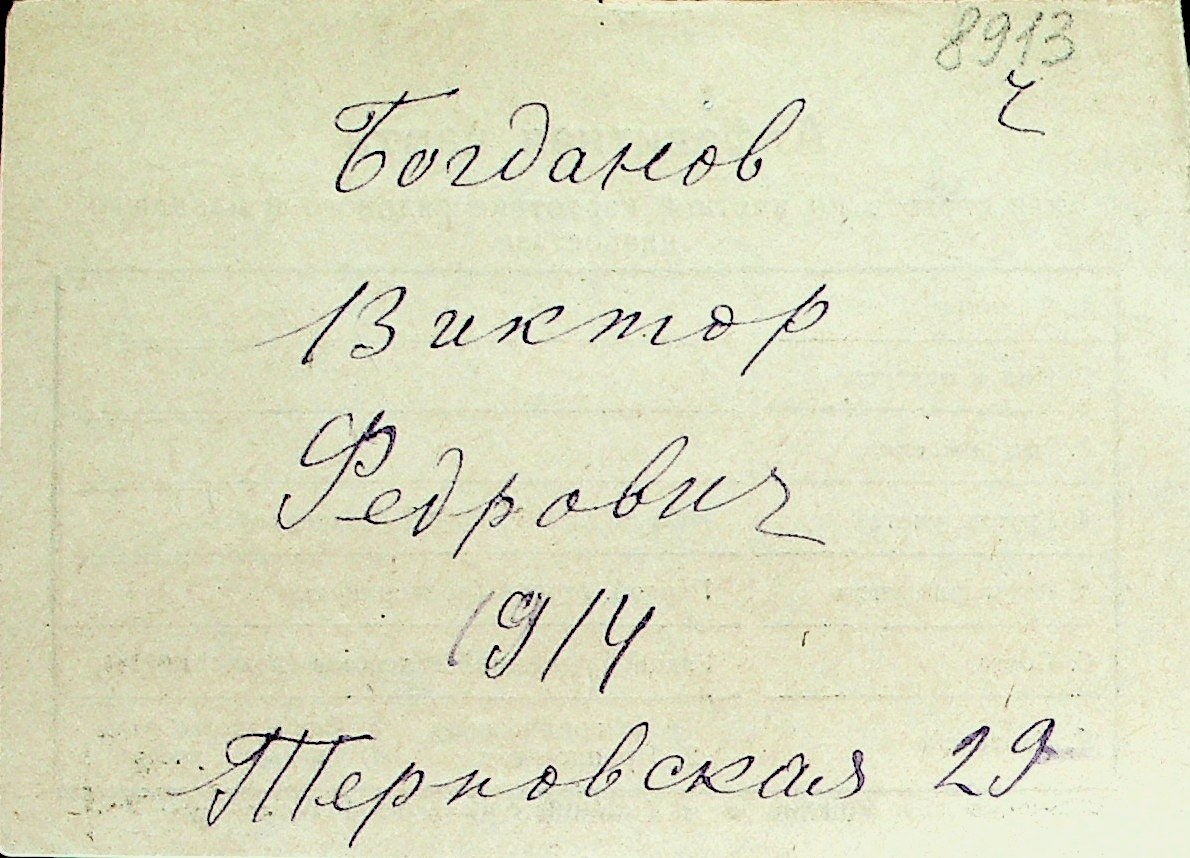 8913
ч
Богданов
Виктор
Федрович
1914
Терновская 29